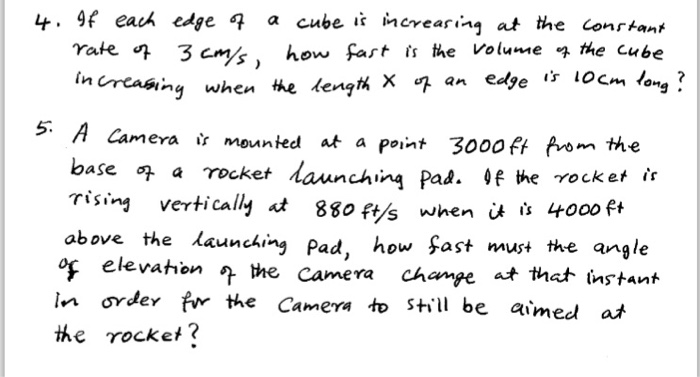 4. If each edge of a cube is increasing at the constant
rate of 3 cm/s, how fast is the volume of the cube
increasing when the length X of an edge is 10cm long?
5. A Camera is mounted at a point 3000 ft from the
base of a rocket launching pad. If the rocket is
rising vertically at 880 ft/s when it is 4000 ft
above the launching pad, how fast must the angle
of elevation of the camera change at that instant
in order for the Camera to still be aimed at
the rocket?